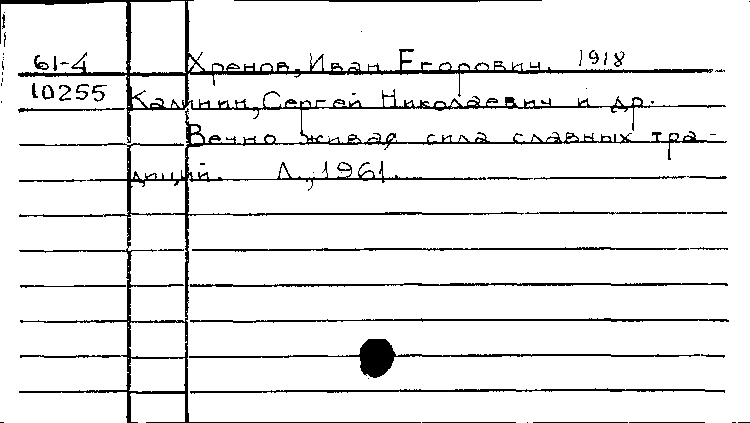 61-4 Хренов, Иван Егорович. 1918
10255 Калинин, Сергей Николаевич и др.
Вечно живая сила славных тра-
диций. Л., 1961.